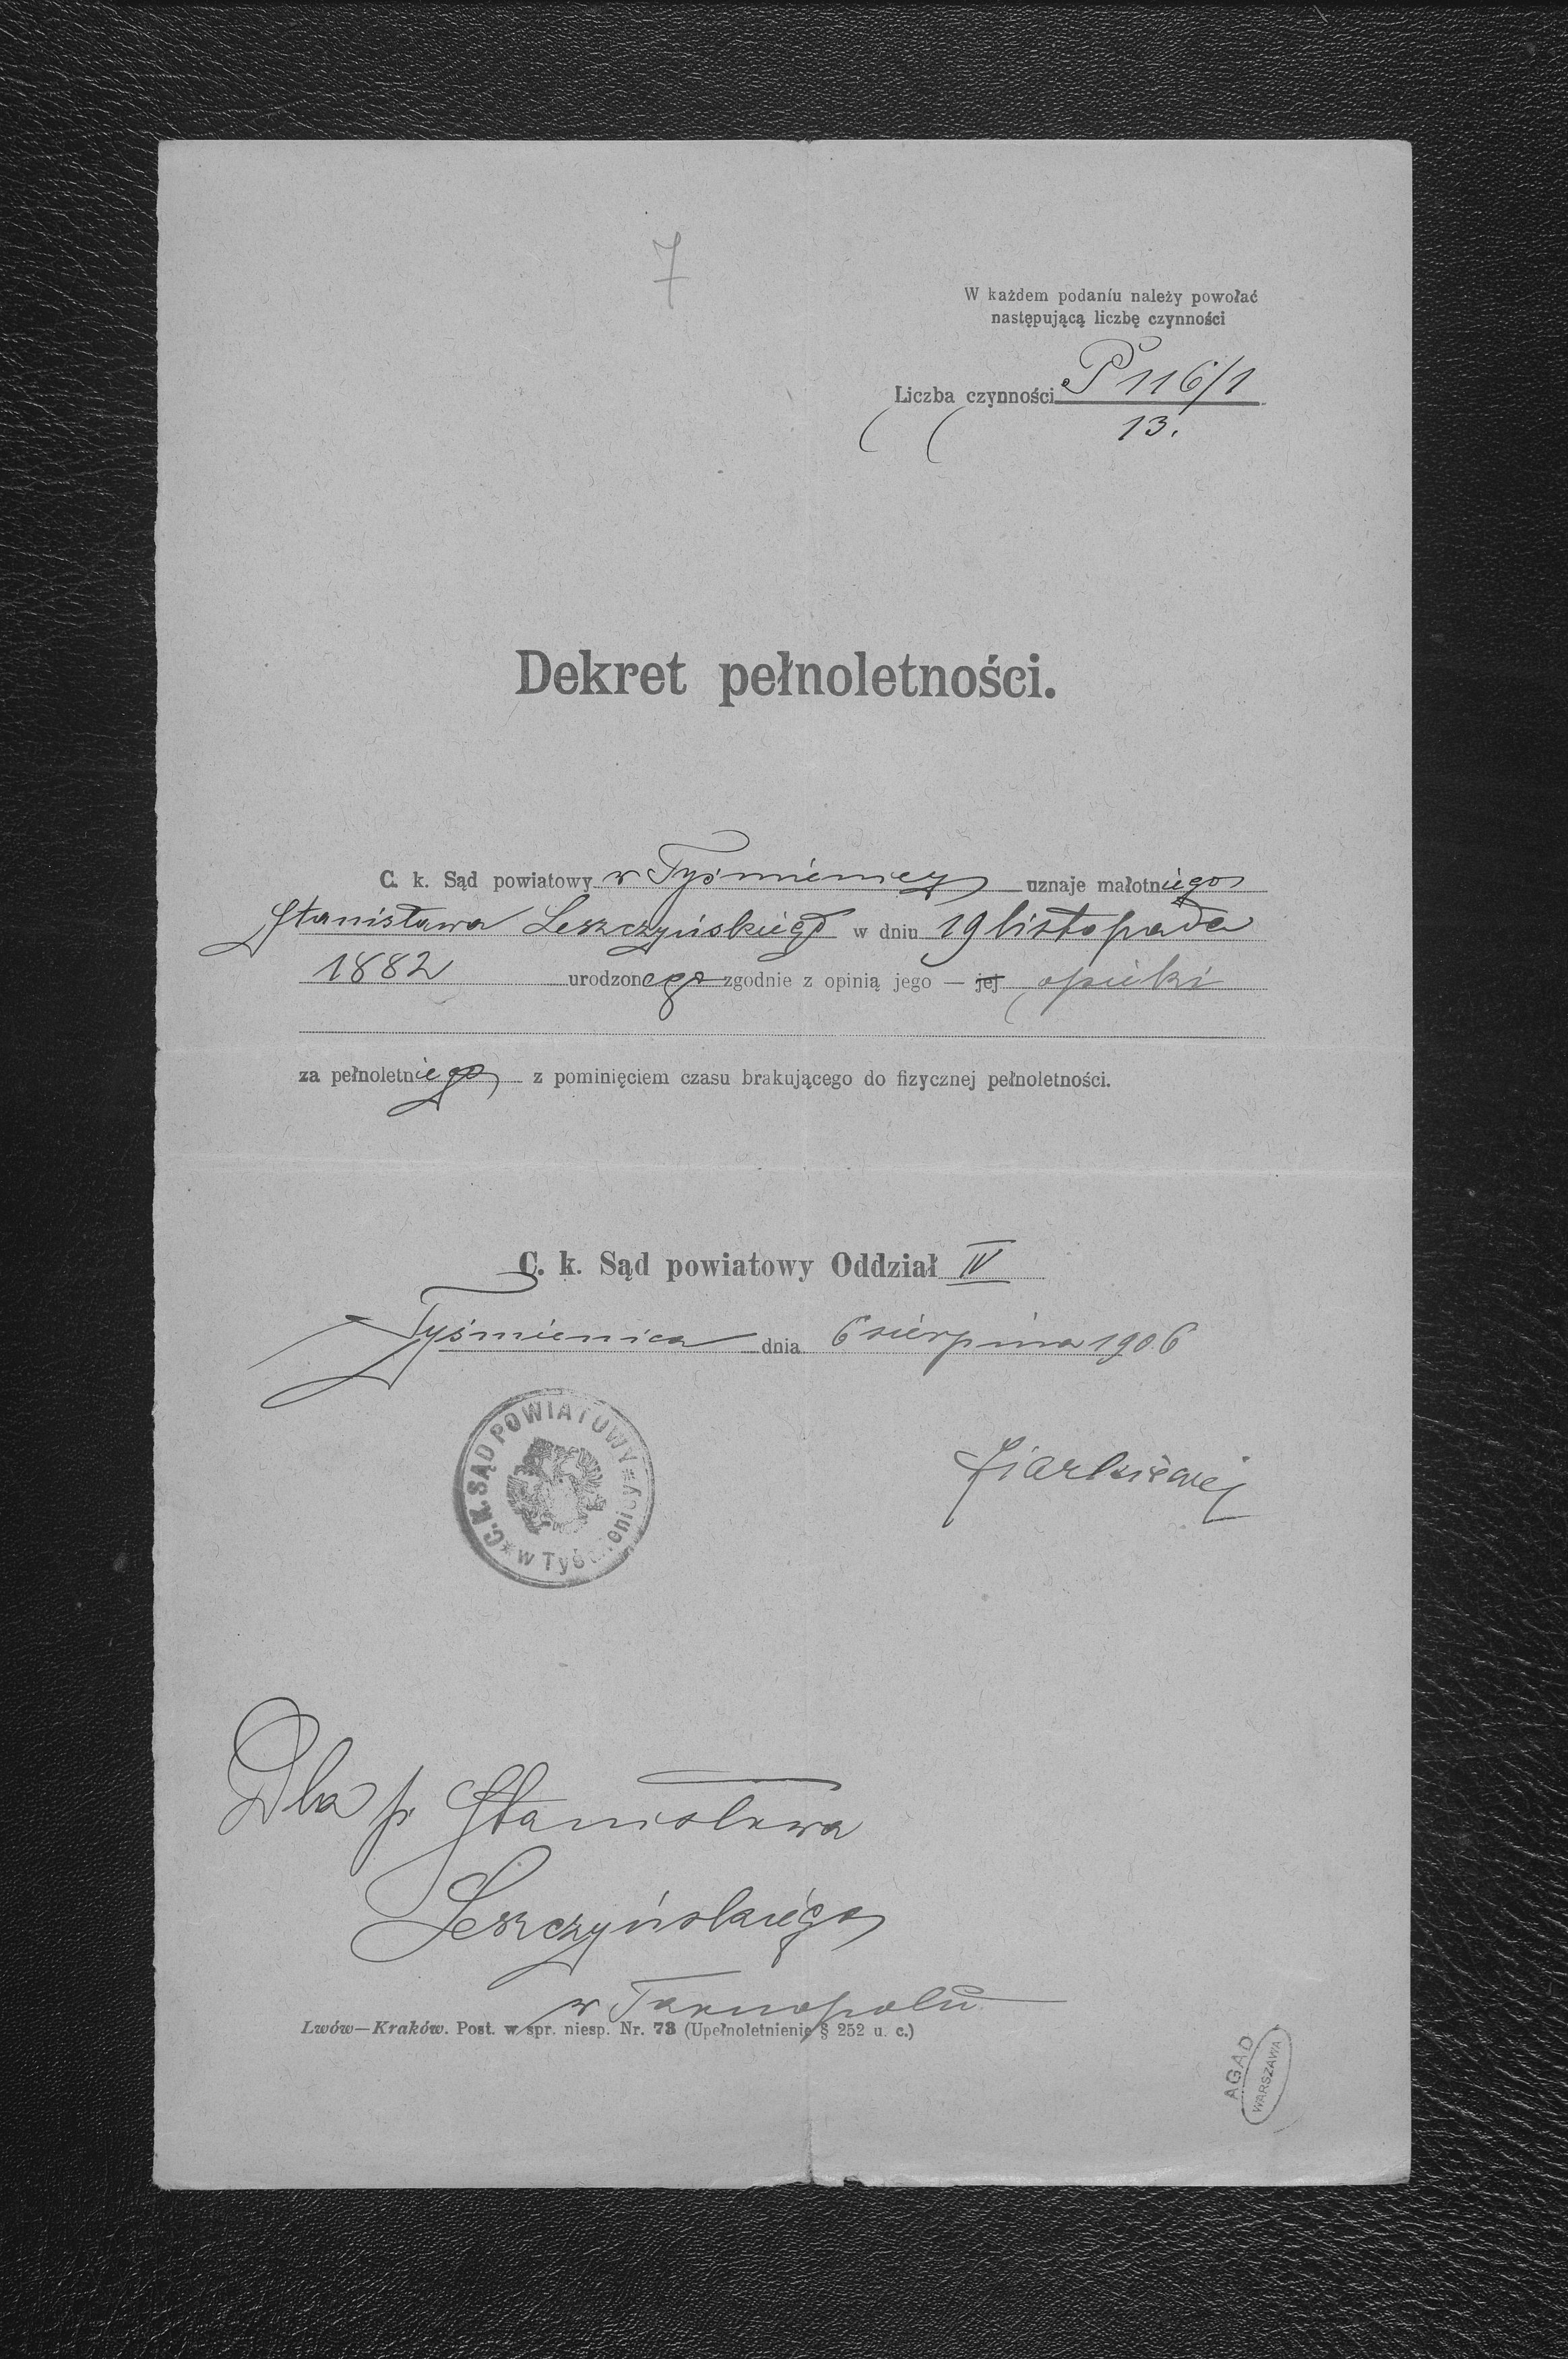 7
W każdem podaniu należy powołać
następującą liczbę czynności
Liczba czynności P 116/1
13.
Dekret pełnoletności.
C. k. Sąd powiatowy w Tyśmienicy uznaje małotniego
Stanisława Leszczyńskiego w dniu 19 listopada
1882 urodzonego zgodnie z opinią jego — jej opieki
za pełnoletniego z pominięciem czasu brakującego do fizycznej pełnoletności.
C. k. Sąd powiatowy Oddział IV
Tyśmienica dnia 6 sierpnia 1906
C. K. SĄD POWIATOWY
w Tyśmienicy
Dla p. Stanisława
Leszczyńskiego
w Tarnopolu
Lwów—Kraków. Post. w spr. niesp. Nr. 73 (Upełnoletnienie § 252 u. c.)
AGAD
WARSZAWA